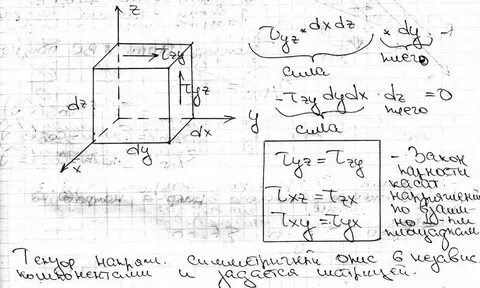 z
τzy
τyz
dz
dx
dy
y
x
τyz * dx dz * dy -
сила плечо
- τzy dy dx · dz = 0
сила плечо
τyz = τzy
τxz = τzx
τxy = τyx
- Закон
парности
касат.
напряжений
по взаим-
но ⊥-ым
площадкам
Тензор напряж. симметричный опис 6 независ.
компонентами и задается матрицей.